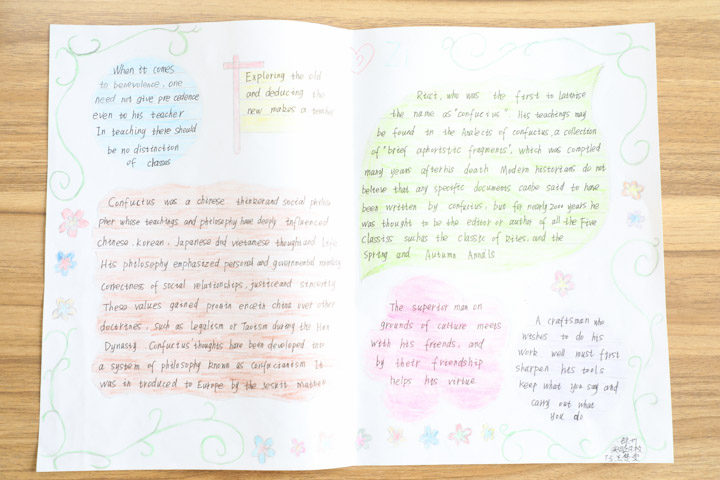 When it comes
to benevolence, one
need not give precedence
even to his teacher
In teaching there should
be no distinction
of classes
Exploring the old
and deducting the
new makes a teacher
Confuctus was a chinese thinkerand social philoso
pher whose teachings and philosophy have deeply influenced
chinese, Korean, Japanese and vietamese thought and life
His philosophy emphasized personal and governmental morality
Correctness of social relationships, justice and sincerity
These values gained promin encein china over other
doctrines, such as legalism or Taoism during the Han
Dynasty Confuctus thoughts have been developed into
a system of philosophy known as Confucianism It
was in troduced to Europe by the Jesuit
Ricci, who was the first to Latinise
the name as "confuctus". His teachings may
be found in the Analects of confuctus, a collection
of "brief aphoristic fragments", which was compiled
many years after his death Modern historians do not
believe that any specific documents canbe said to have
been written by confuctus, but for nearly 2000 years he
was thought to be the editor or author of all the Five
Classics suchas the classic of Rites, and the
Spring and Autumn Annals
The superior man on
grounds of culture meets
with his friends, and
by their friendship
helps his virtue
A craftsman who
wishes to do his
work well must first
sharpen his tools
keep what you say and
carry out what
you do